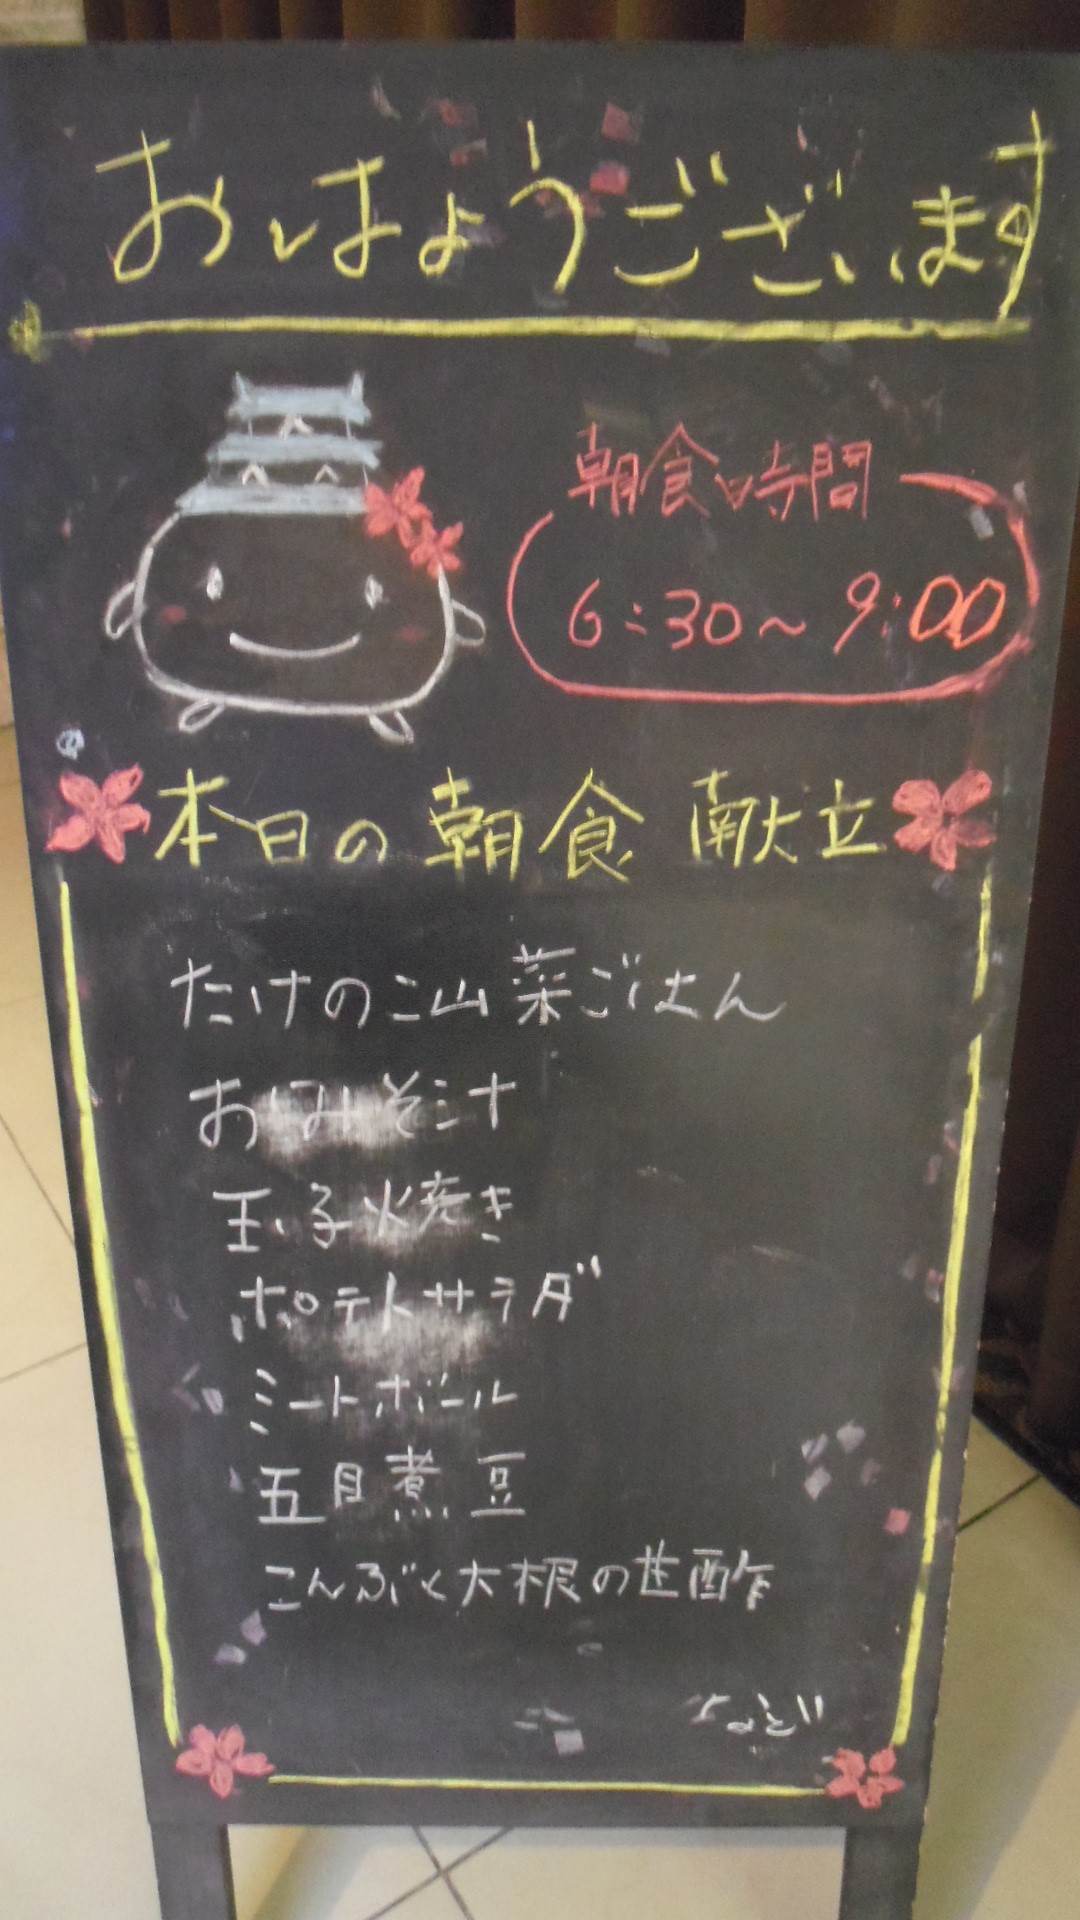 おはようございます
朝食時間
6:30～9:00
本日の朝食献立
たけのこ山菜ごはん
おみそ汁
玉子焼き
ポテトサラダ
ミートボール
五目煮豆
こんぶと大根の甘酢
など